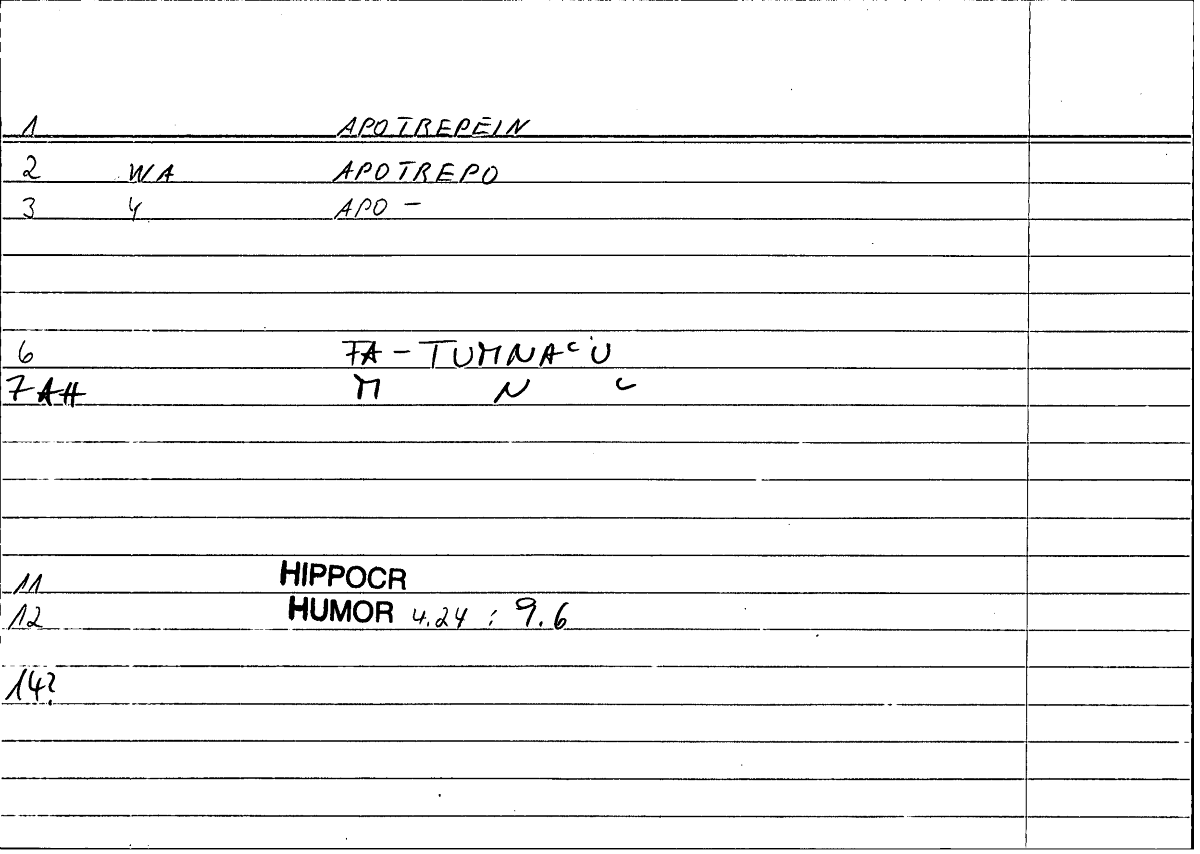 1 APOTREPEIN
2 WA APOTREPO
3 4 APO -
6 FA - TUMNAcU
7 AH M N c
11 HIPPOCR
12 HUMOR 4.24 : 9.6
14?